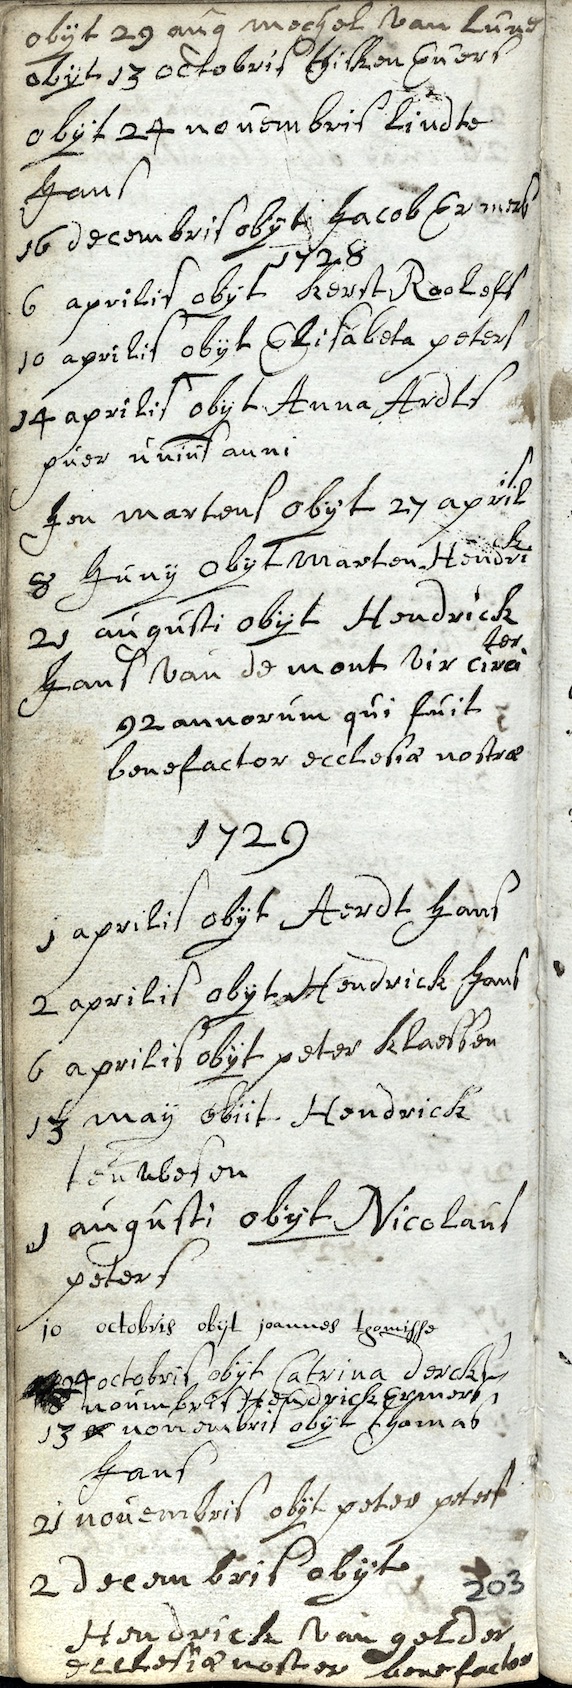 obÿt 29 aug mechel van Lune
obÿt 13 octobris hisken Evers
obÿt 24 novembris lindte
Hans
16 decembris obÿt Jacob Ermers
1728
6 aprilis obÿt kerst Roolefs
10 aprilis obÿt Elisabeta peters
14 aprilis obÿt Anna Ardts
puer unius anni
Jen martens obÿt 27 aprilis
8 Juny obÿt Marten Hendrick
21 augusti obÿt Hendrick
Hans van de mont vir circiter
92 annorum qui fuit
benefactor ecclesiæ nostræ
1729
1 aprilis obÿt Aerdt Hans
2 aprilis obÿt Hendrick Hans
6 aprilis obÿt peter klaessen
13 maÿ obiit Hendrick
1 augusti obÿt Nicolaus
peters
10 octobris obÿt joannes thomisse
24 octobris obÿt Catrina dercks
8 novmbris Hendrick Ermers
13 novembris obÿt thomas
Hans
21 novembris obÿt peter peters
2 decembris obÿt
203
Hendrick van gelder
ecclesiæ noster benefactor